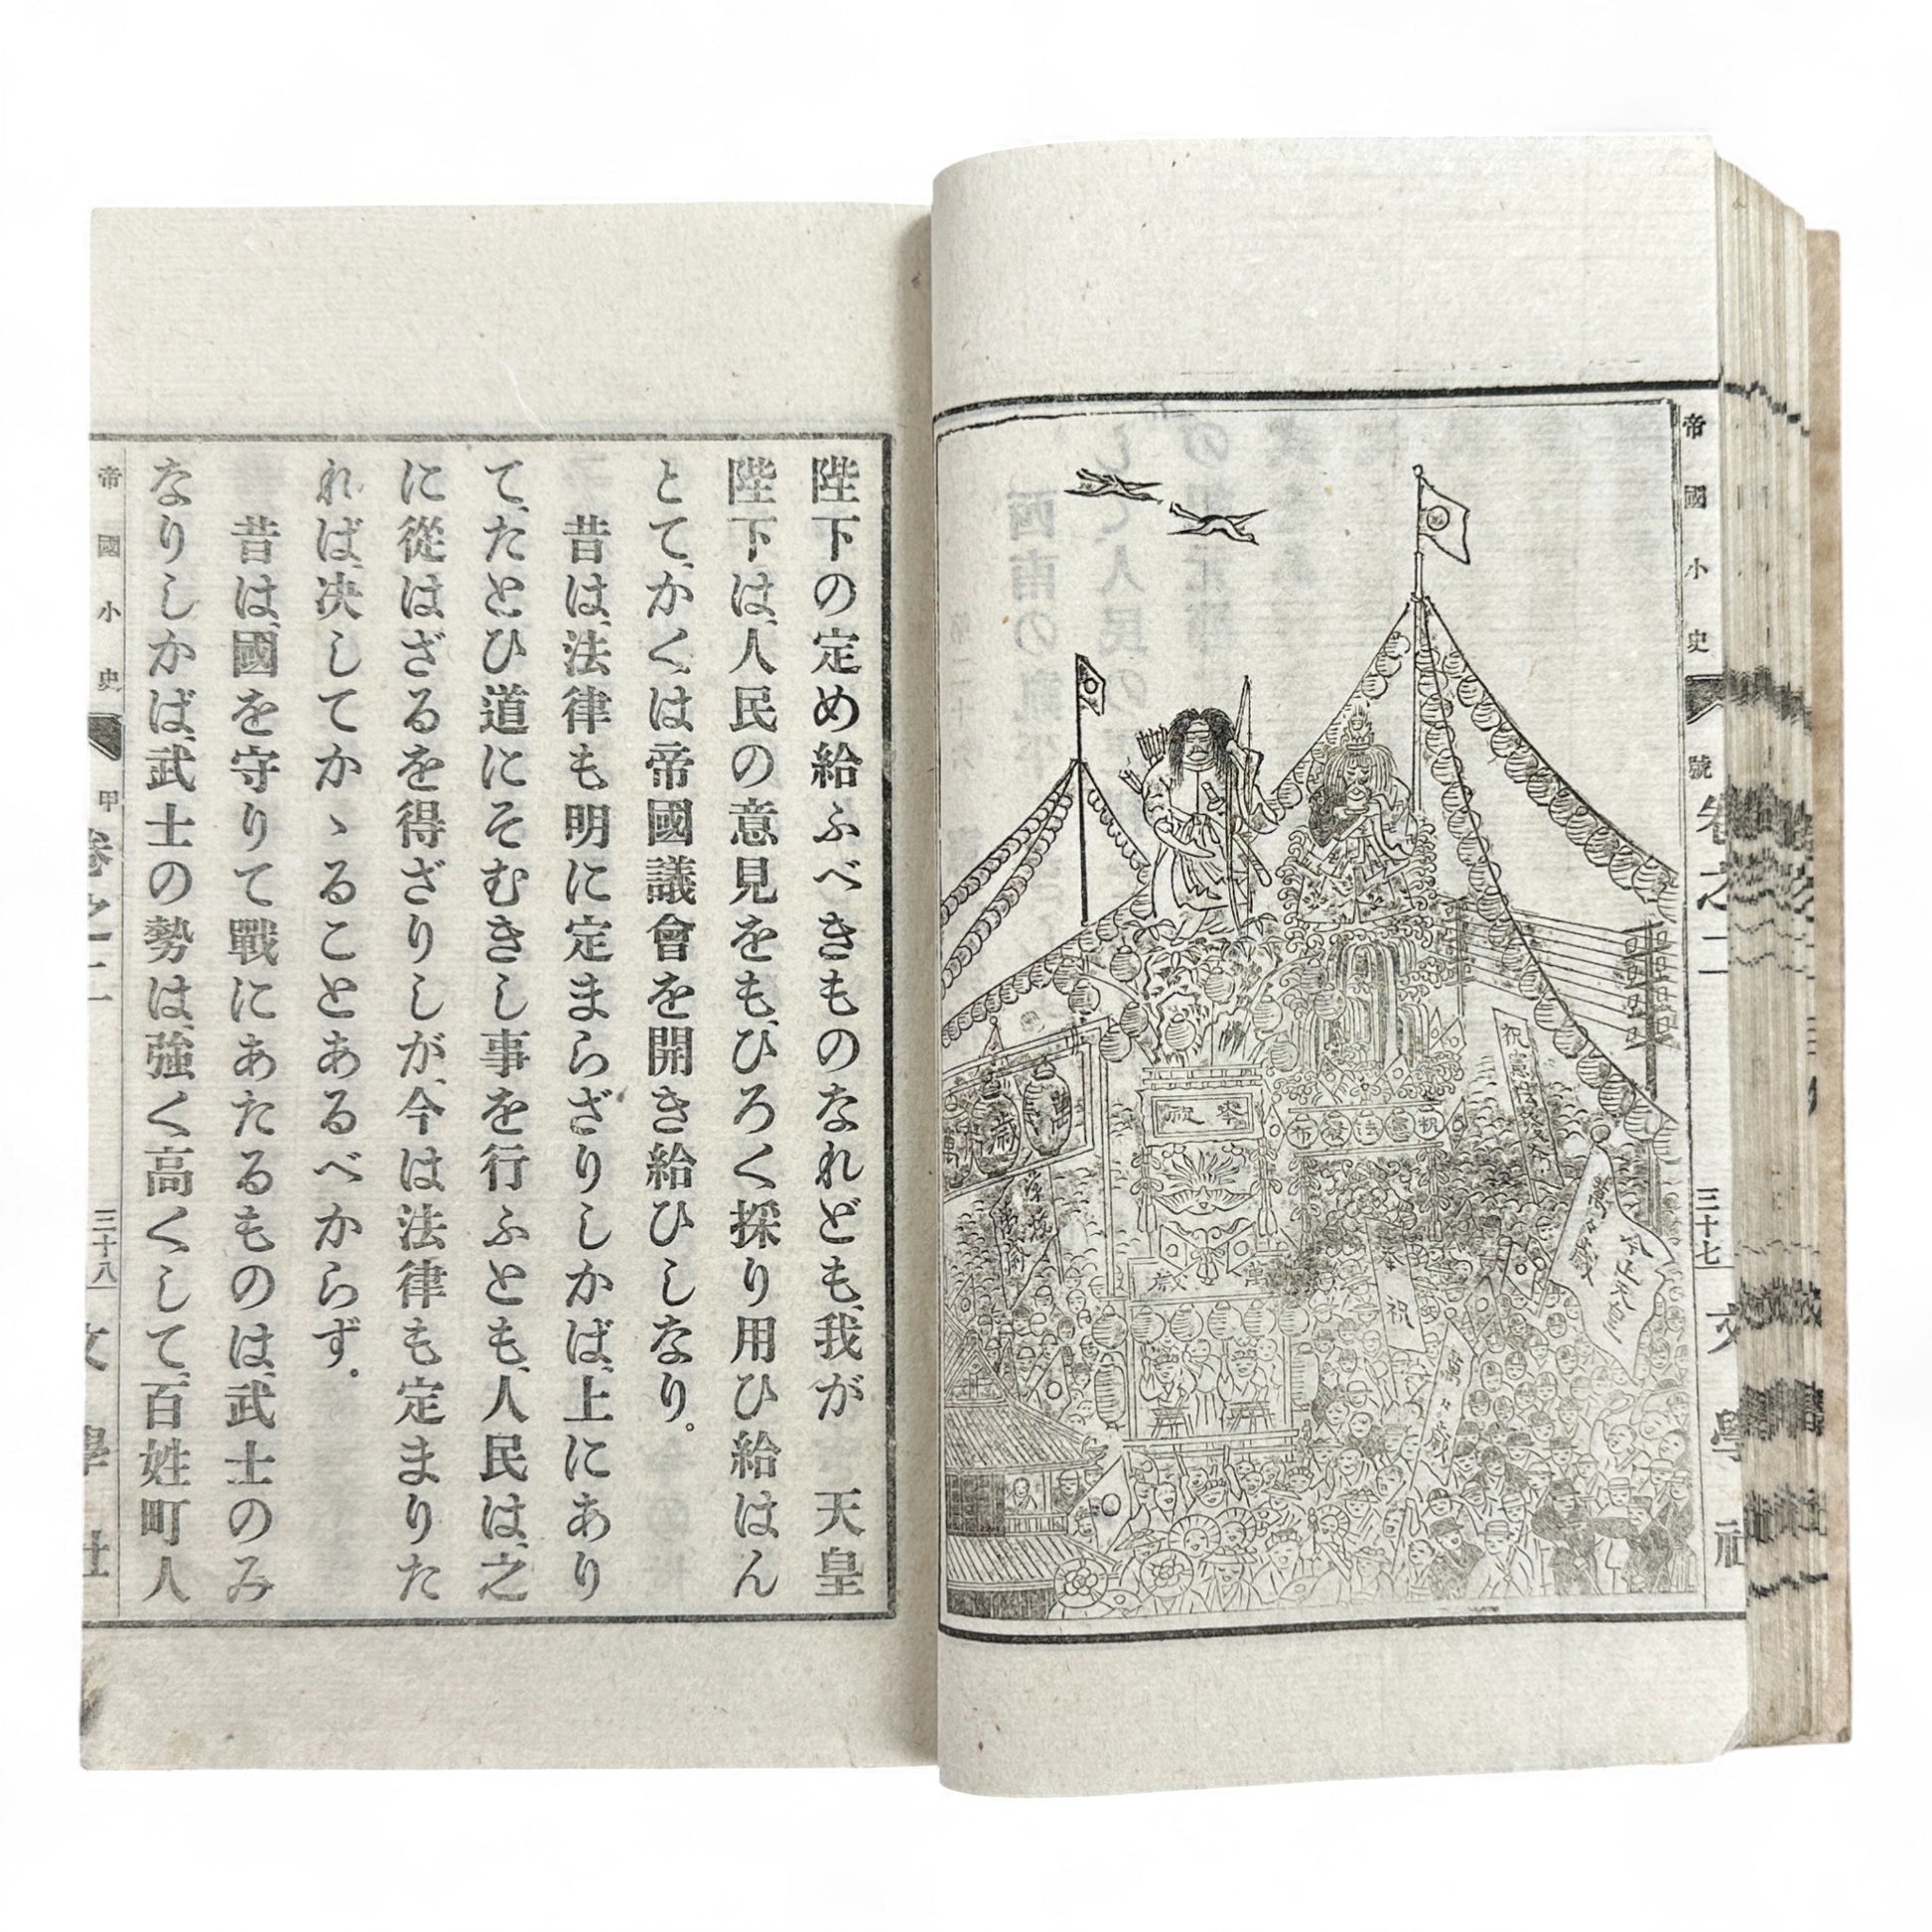 帝國小史
號
卷之二
三十七
文學社
祝憲法發布
萬々歳
奉祝
奉祝
萬歳
祝憲法發布
萬々歳
陛下の定め給ふべきものなれども、我が 天皇
陛下は、人民の意見をも、ひろく採り用ひ給はん
とて、かくは帝國議會を開き給ひしなり。
昔は、法律も明に定まらざりしかば、上にあり
て、たとひ道にそむきし事を行ふとも、人民は、之
に從はざるを得ざりしが、今は法律も定まりた
れば、決してかゝることあるべからず。
昔は、國を守りて戰にあたるものは、武士のみ
なりしかば、武士の勢は、強く高くして、百姓町人
帝國小史
甲
卷之二
三十八
文學社